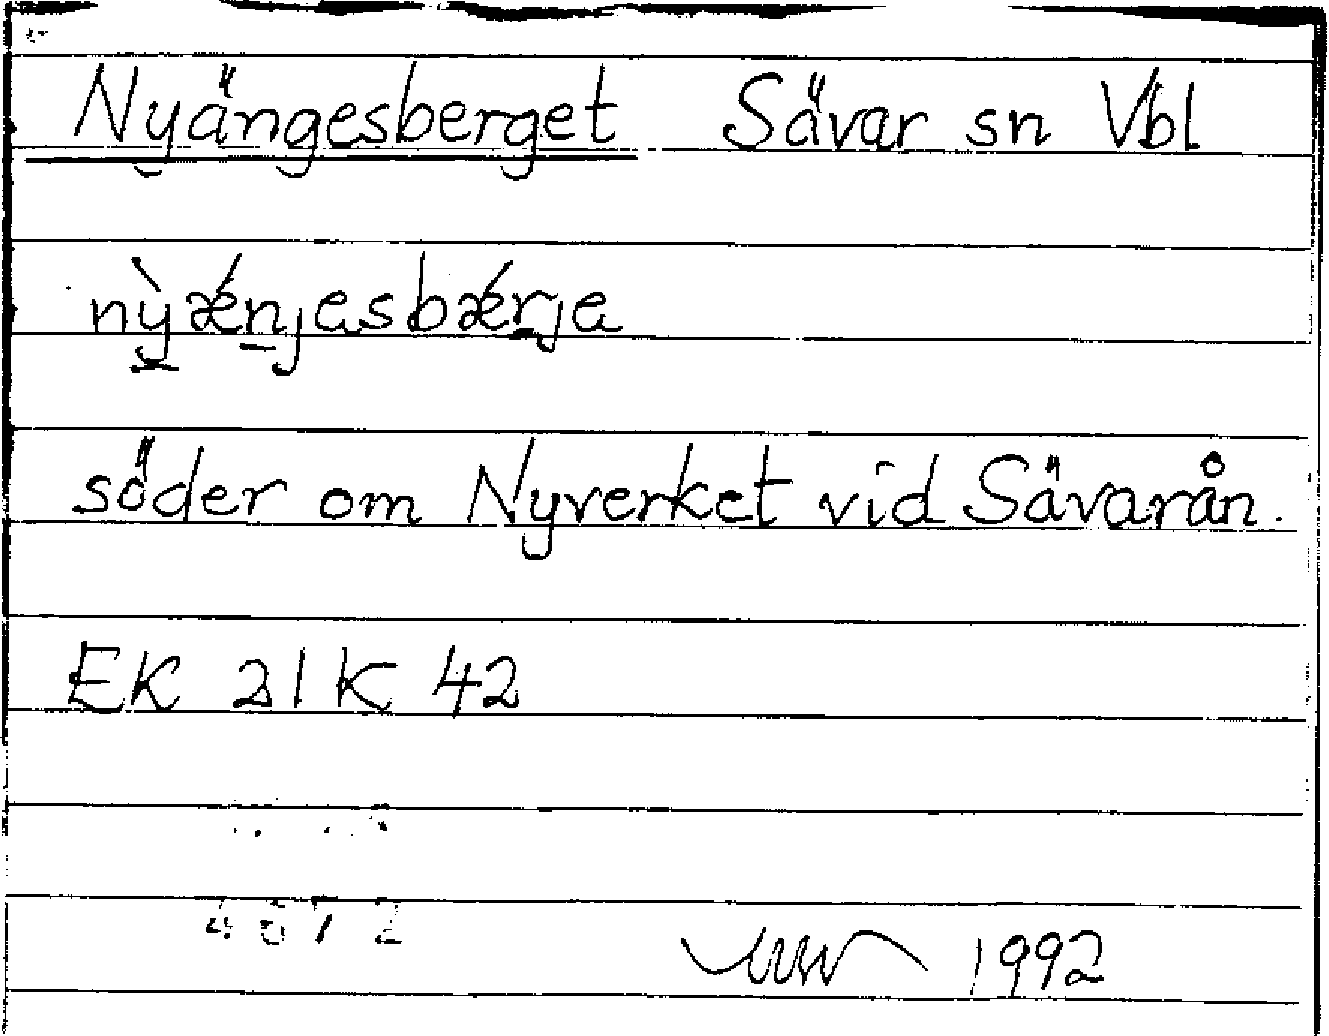 Nyängesberget Sävar sn Vbl
nỳǽnjesbǽrje
söder om Nyverket vid Sävarån.
EK 21 K 42
4672
1992